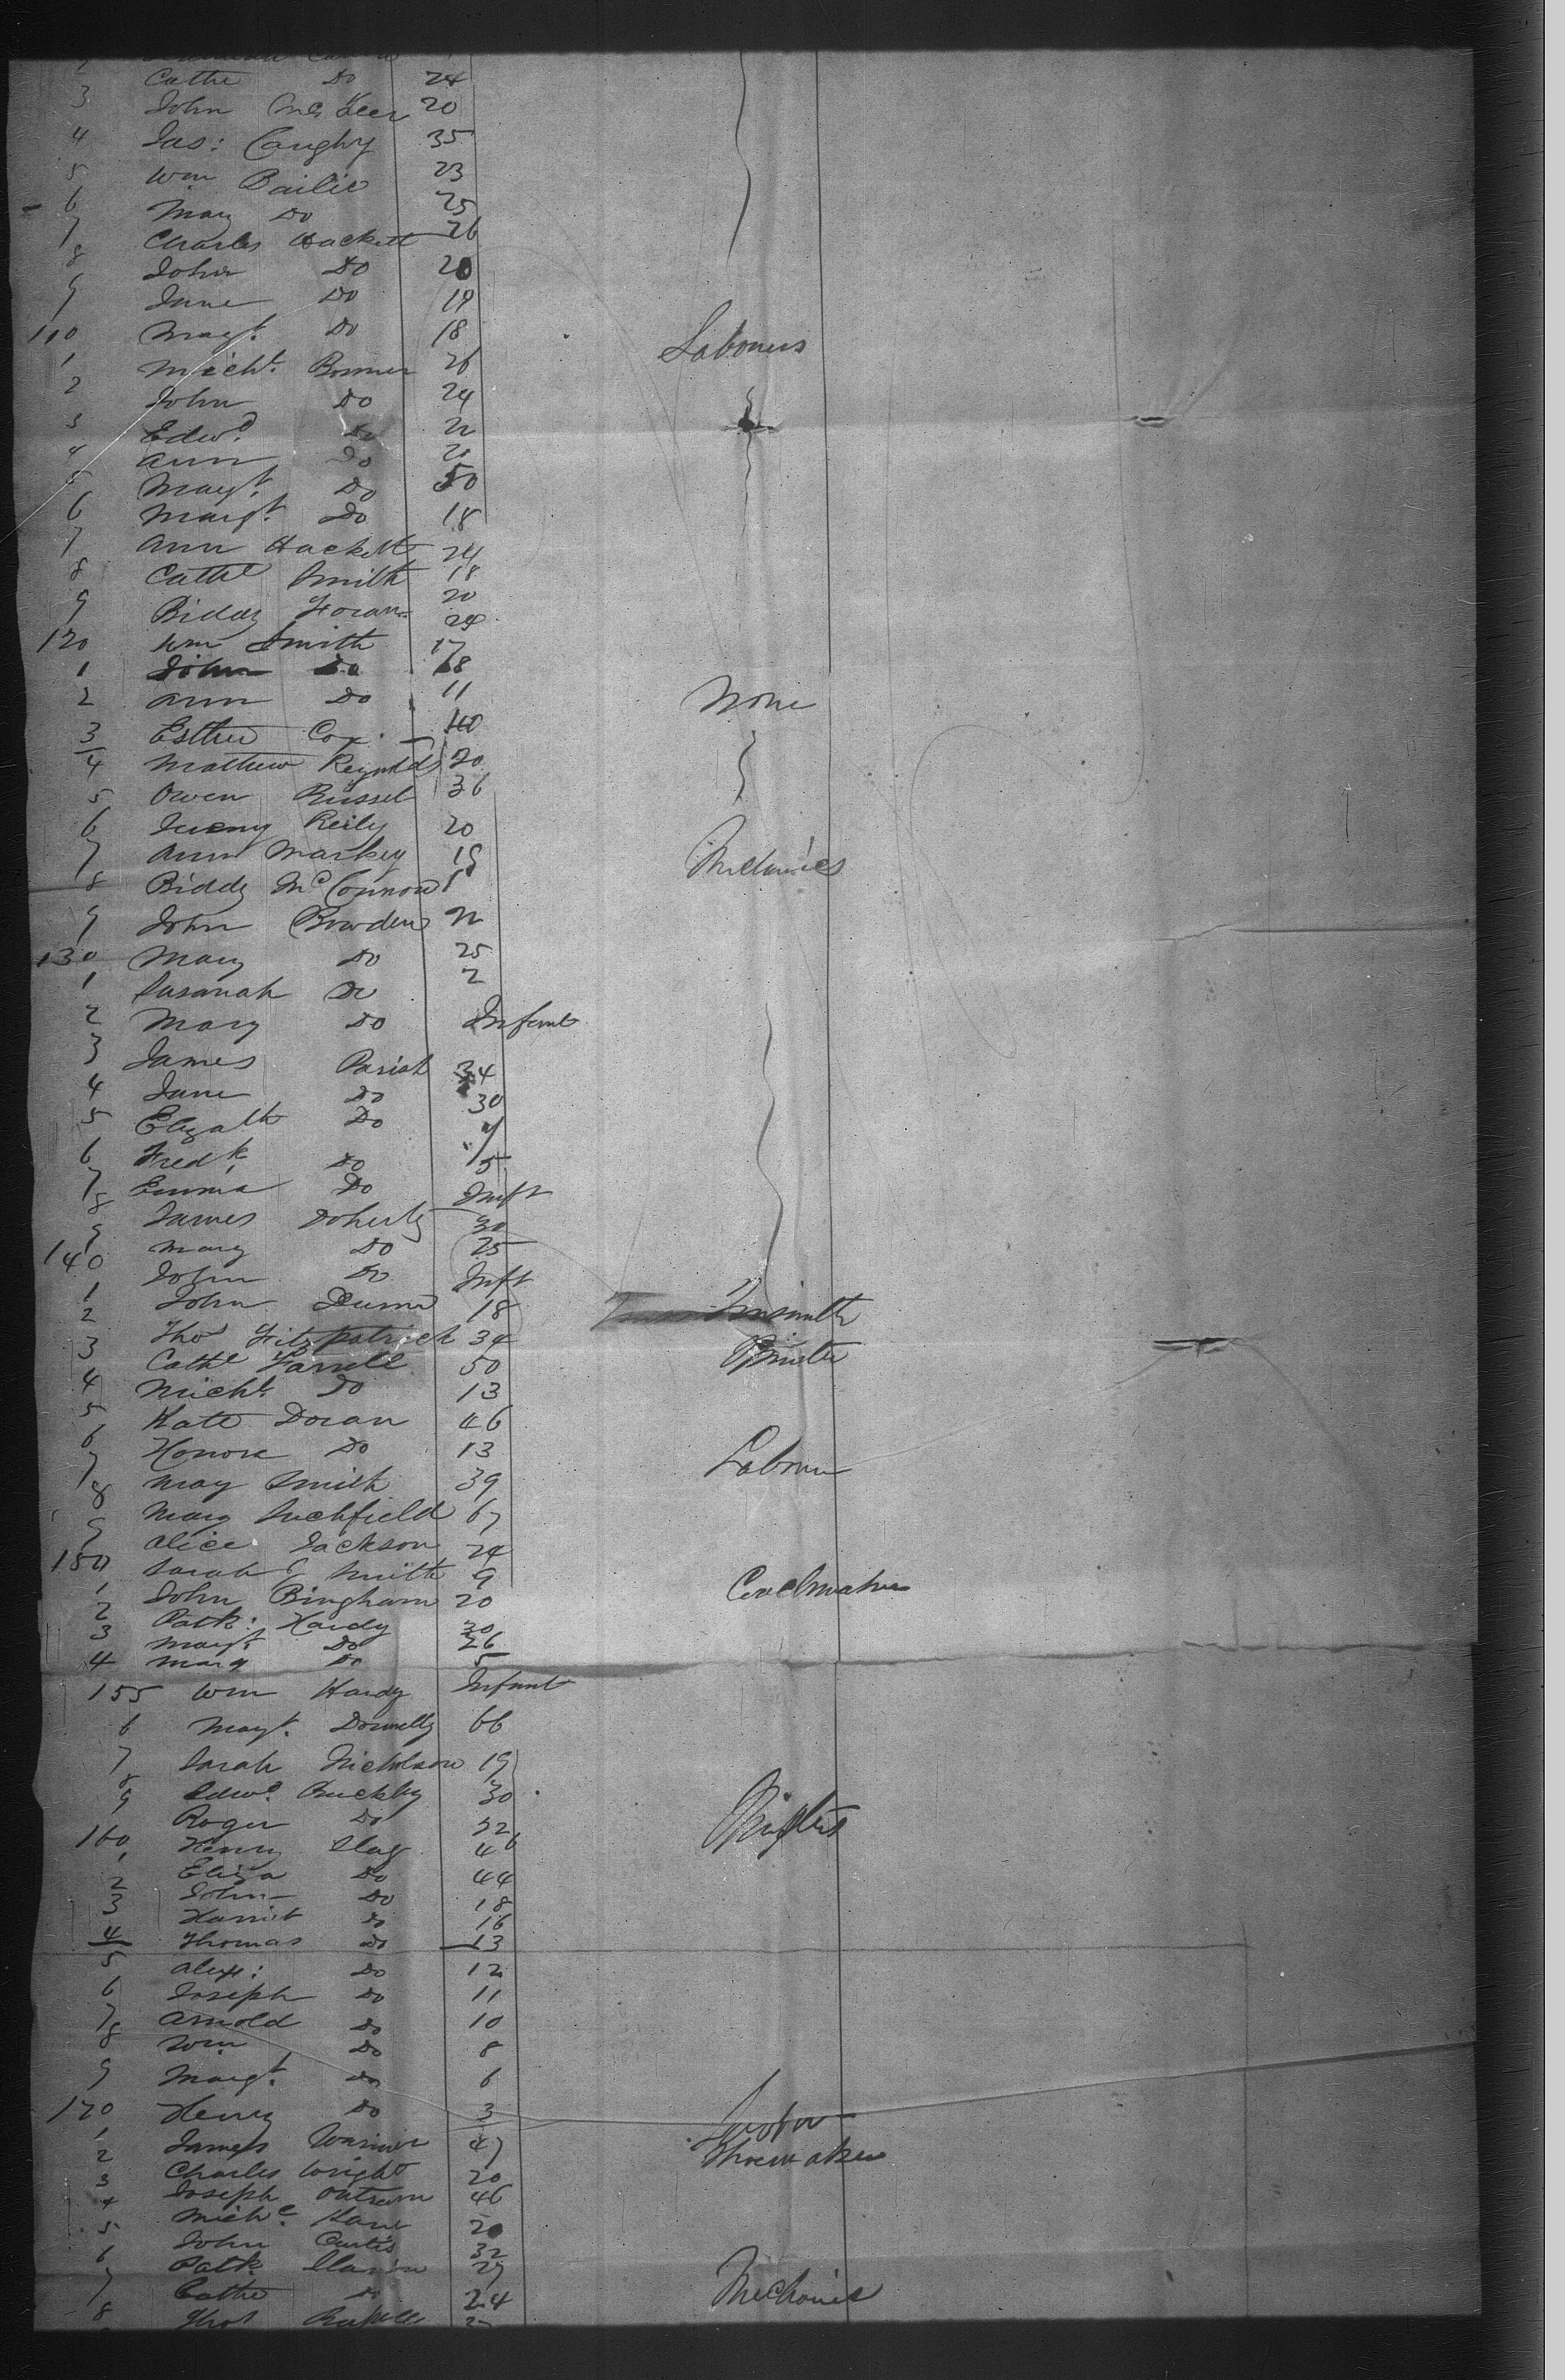 3 Cathe Do 24
John McGeer 20
4 Jas: Caughy 35
5 Wm Bailie 23
6 Mary Do 25
7 Charles Hackett 26
8 John Do 20
9 Jane Do 19
110 Magt. Do 18 Labourers
1 Michl. Bonner 26
2 John Do 24
3 Edwd. Do 22
4 Ann Do
5 Magt. Do 50
6 Margt. Do 18
7 Ann Hackett 24
8 Cathe Smith 18
9 Biddy Foran 20
120 Wm Smith 17
1 John Do 18
2 Ann Do 11 None
3 Esther Cox 40
4 Mathew Reynolds 20
5 Owen Russel 36
6 Reily 20
7 Ann Markey 19 Mechanics
8 Biddy McConnow
9 John Bowden 22
130 Mary Do 25
1 Susanah Do 2
2 Mary Do Infant
3 James Parish 34
4 Jane Do 30
5 Elizath Do 7
6 Fredk. Do 5
7 Emma Do Inft
8 James Doherty 30
9 Mary Do 25
140 John Do Inft
1 John 18 Tinsmith
2 Thos Fitzpatrick 34
3 Cathe Farrell 50
4 Michl. Do 13
5 Kate Doran 46
6 Honora Do 13 Labourer
7 May Smith 39
8 Mary Suchfield 67
9 Alice Jackson 24
150 Sarah J Smith 9
1 John Bingham 20
2 Patk: Hardy 30
3 Magt. Do 26
4 Mary Do 5
155 Wm Hardy Infant
6 Magt. Donnelly 66
7 Sarah Nicholson 19
8 Edwd. Buckley 30
9 Roger Do 32
160 Henry Clay 46
1 Eliza Do 44
2 John Do 18
3 Harriet Do 16
4 Thomas Do 13
5 Alex: Do 12
6 Joseph Do 11
7 Arnold Do 10
8 Wm Do 8
9 Margt. Do 6
170 Henry Do 3
1 James 47
2 Charles Wright 20 Shoemaker
3 Joseph Outram 46
4 Michl. Kane 20
5 John Curtis 32
6 Patk 27
7 Cathe Do 24 Mechanic
8 Thos